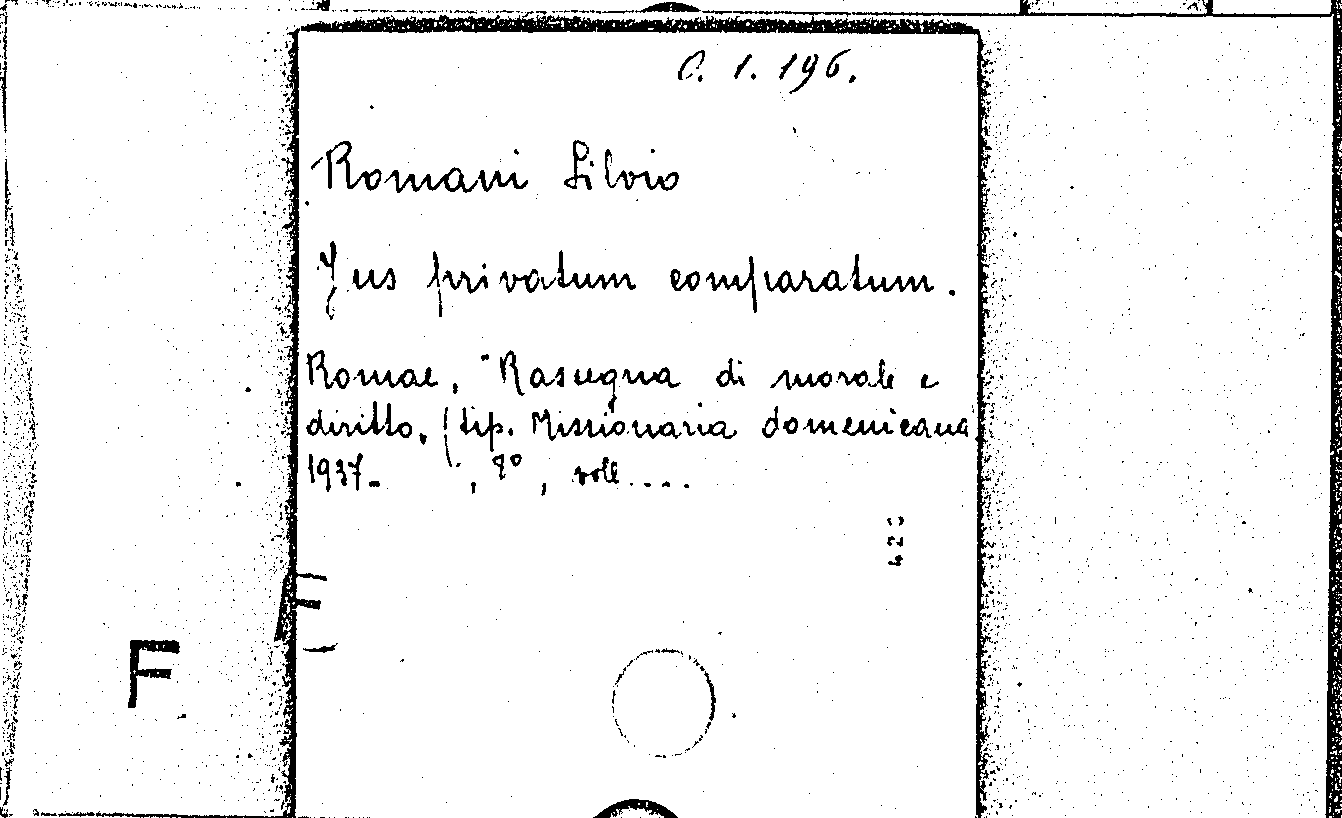 C. 1. 196.
Romani Silvio
Jus privatum comparatum.
Romae, "Rassegna di morale e
diritto, (tip. Missionaria domenicana
1937- , 8°, voll....
F